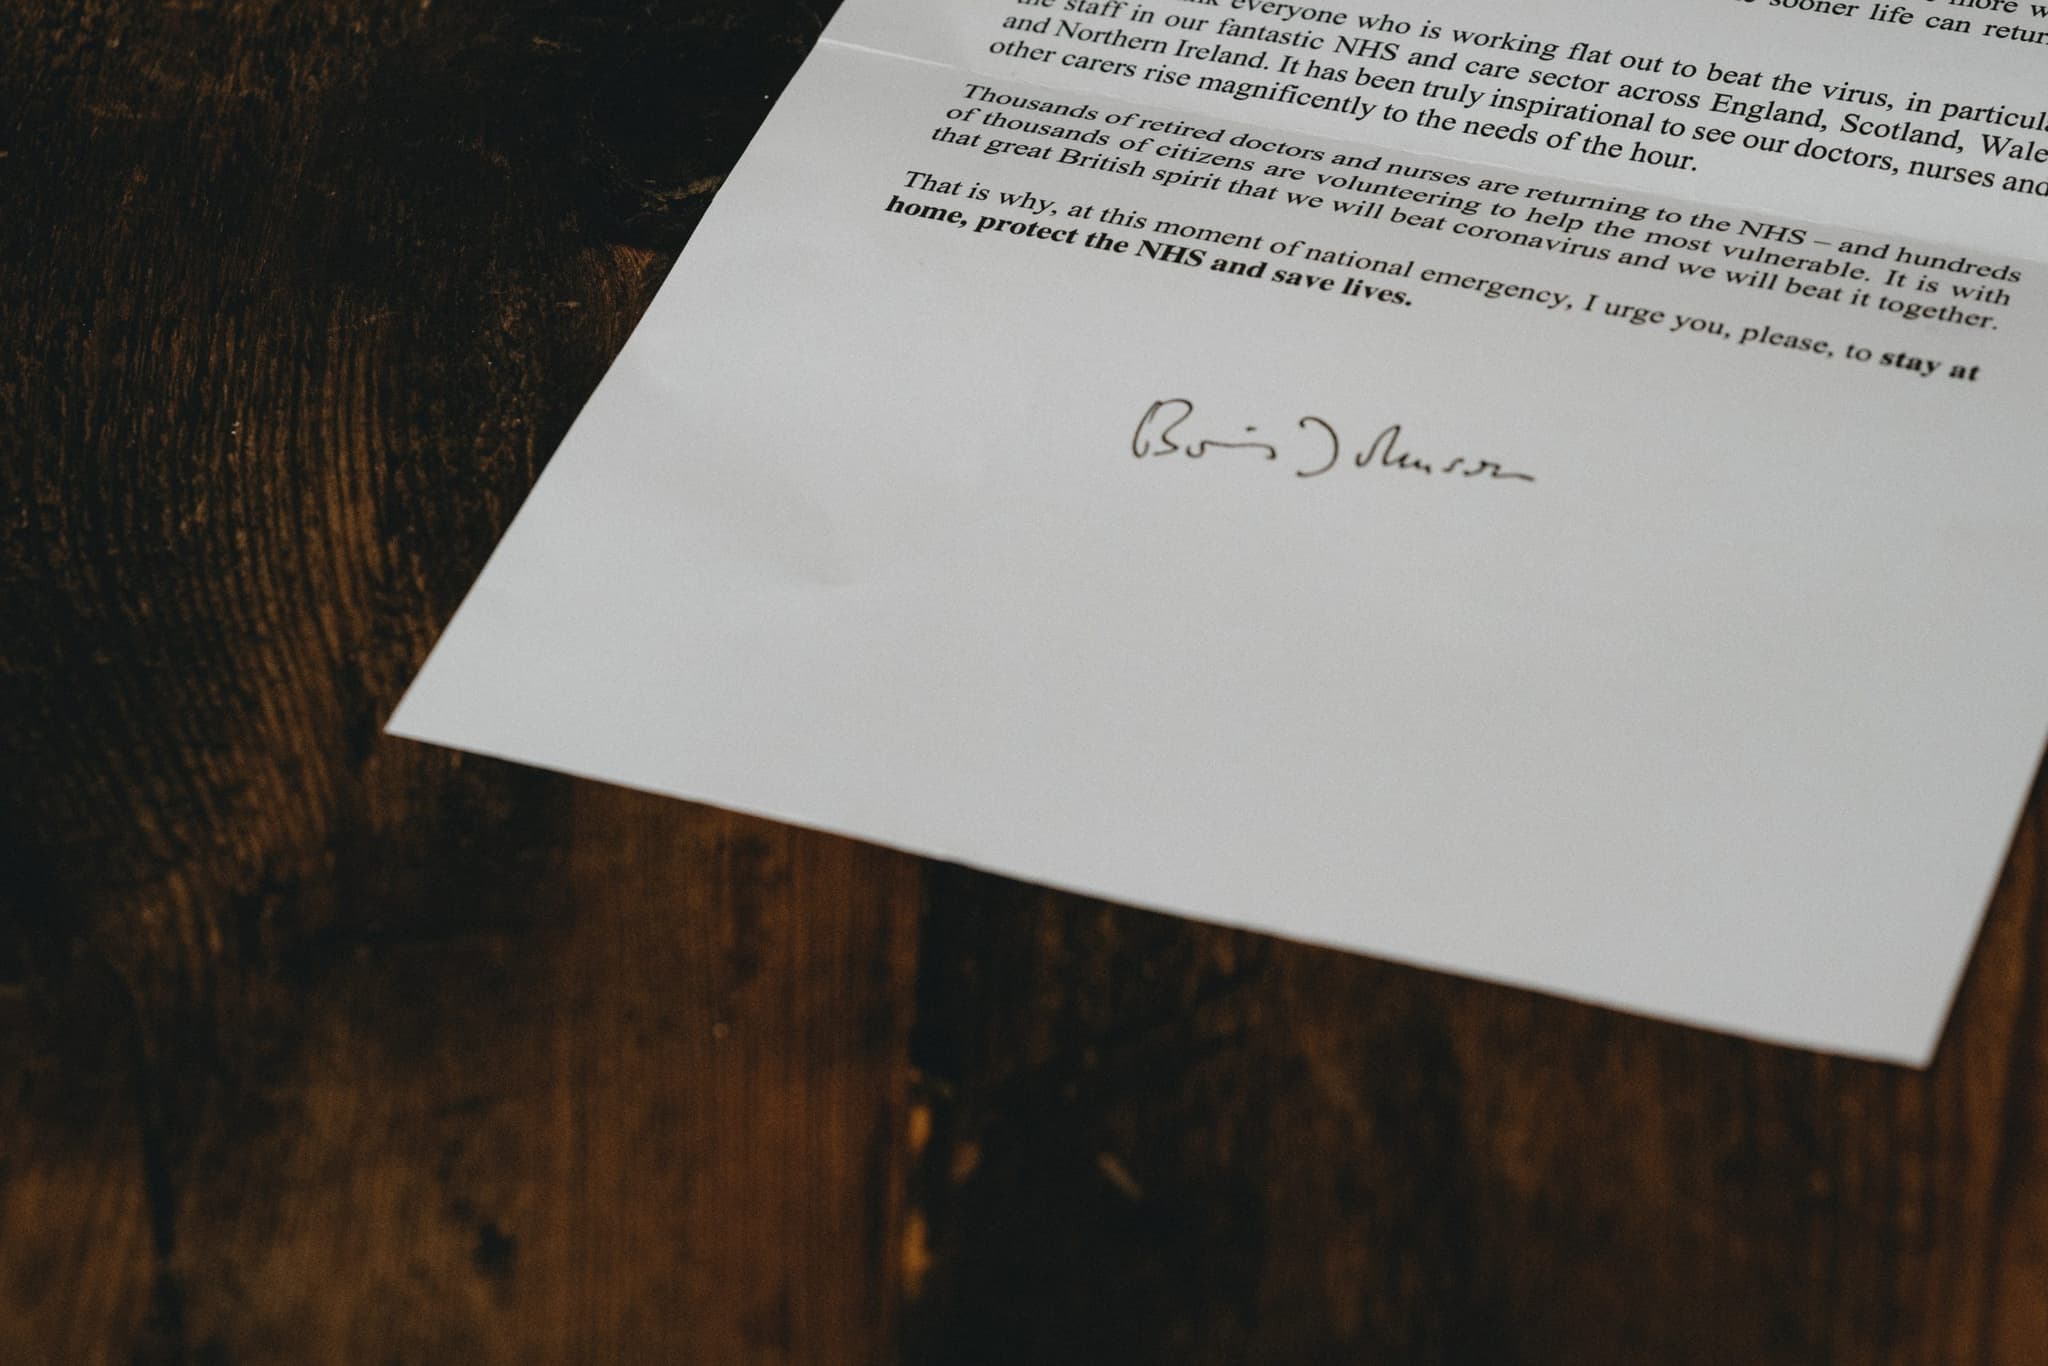 sooner life can
everyone who is working flat out to beat the virus, in
the staff in our fantastic NHS and care sector across England, Scotland,
and Northern Ireland. It has been truly inspirational to see our doctors, nurses and
other carers rise magnificently to the needs of the hour.
Thousands of retired doctors and nurses are returning to the NHS – and hundreds
of thousands of citizens are volunteering to help the most vulnerable. It is with
that great British spirit that we will beat coronavirus and we will beat it together.
That is why, at this moment of national emergency, I urge you, please, to stay at
home, protect the NHS and save lives.
Boris Johnson